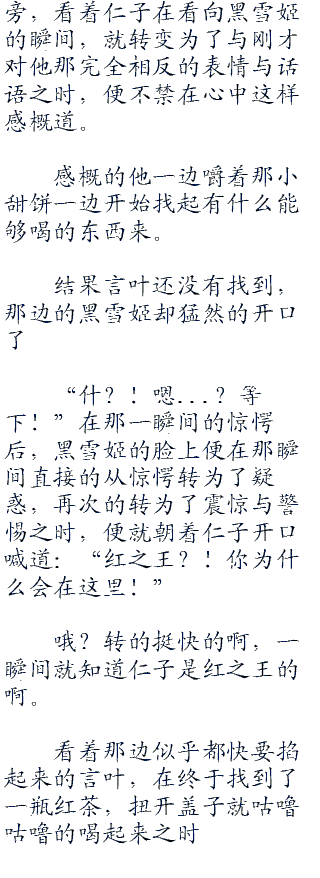 旁，看着仁子在看向黑雪姬
的瞬间，就转变为了与刚才
对他那完全相反的表情与话
语之时，便不禁在心中这样
感概道。
感概的他一边嚼着那小
甜饼一边开始找起有什么能
够喝的东西来。
结果言叶还没有找到，
那边的黑雪姬却猛然的开口
了
“什？！嗯...？等
下！”在那一瞬间的惊愕
后，黑雪姬的脸上便在那瞬
间直接的从惊愕转为了疑
惑，再次的转为了震惊与警
惕之时，便就朝着仁子开口
喊道：“红之王？！你为什
么会在这里！”
哦？转的挺快的啊，一
瞬间就知道仁子是红之王的
啊。
看着那边似乎都快要掐
起来的言叶，在终于找到了
一瓶红茶，扭开盖子就咕噜
咕噜的喝起来之时